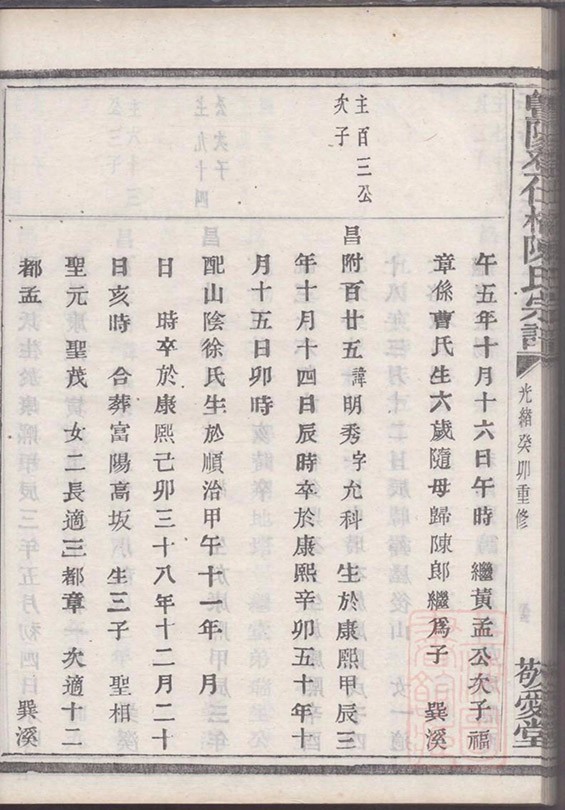 陳氏宗譜
光緒癸卯重修
敬愛堂
午五年十月十六日午時 繼黃孟公次子福
章係曹氏生六歲隨母歸陳郎繼爲子 巽溪
主百三公
次子
昌附百廿五諱明秀字允科 生於康熙甲辰三
年十月十四日辰時卒於康熙辛卯五十年十
月十五日卯時
配山陰徐氏生於順治甲午十一年 月
日 時卒於康熙己卯三十八年十二月二十
日亥時 合葬富陽高坂 生三子 聖相
聖元聖茂 女二長適三都章 次適十二
都孟 巽溪